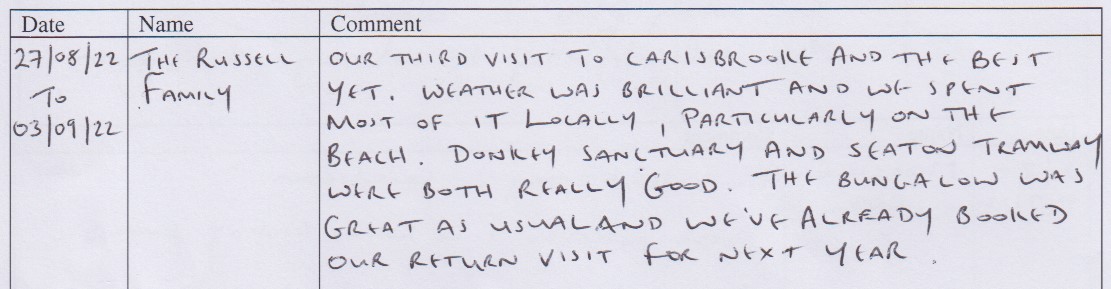 Date Name Comment
27/08/22 THE RUSSELL OUR THIRD VISIT TO CARISBROOKE AND THE BEST
TO FAMILY YET. WEATHER WAS BRILLIANT AND WE SPENT
03/09/22 MOST OF IT LOCALLY, PARTICULARLY ON THE
BEACH. DONKEY SANCTUARY AND SEATON TRAMWAY
WERE BOTH REALLY GOOD. THE BUNGALOW WAS
GREAT AS USUAL AND WE'VE ALREADY BOOKED
OUR RETURN VISIT FOR NEXT YEAR.